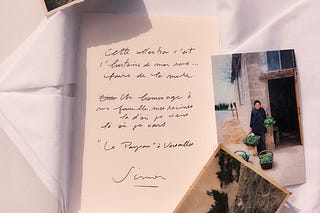 Cette collection c'est
l'histoire de mon reve...
faire de la mode
Un hommage à
ma famille, mes racines
là d'où je viens
là où je vais
"Le Paysan" à Versailles
Simon